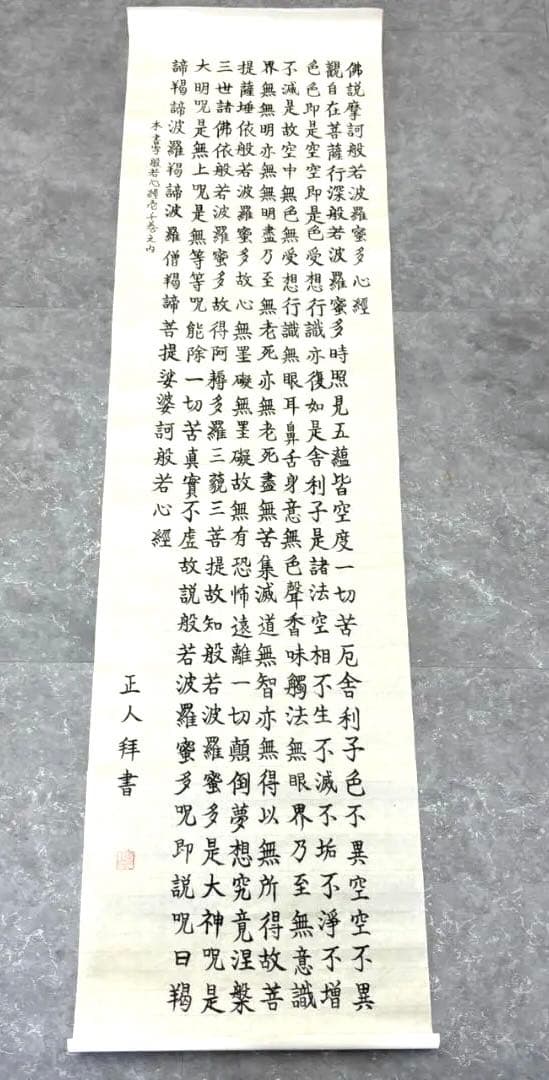 佛説摩訶般若波羅蜜多心經
觀自在菩薩行深般若波羅蜜多時照見五蘊皆空度一切苦厄舍利子色不異空空不異
色色即是空空即是色受想行識亦復如是舍利子是諸法空相不生不滅不垢不淨不增
不減是故空中無色無受想行識無眼耳鼻舌身意無色聲香味觸法無眼界乃至無意識
界無無明亦無無明盡乃至無老死亦無老死盡無苦集滅道無智亦無得以無所得故菩
提薩埵依般若波羅蜜多故心無罣礙無罣礙故無有恐怖遠離一切顛倒夢想究竟涅槃
三世諸佛依般若波羅蜜多故得阿耨多羅三藐三菩提故知般若波羅蜜多是大神呪是
大明呪是無上呪是無等等呪能除一切苦真實不虛故説般若波羅蜜多呪即説呪曰羯
諦羯諦波羅羯諦波羅僧羯諦菩提娑婆訶般若心經
本書写般若心経壱千巻之内
正人拜書